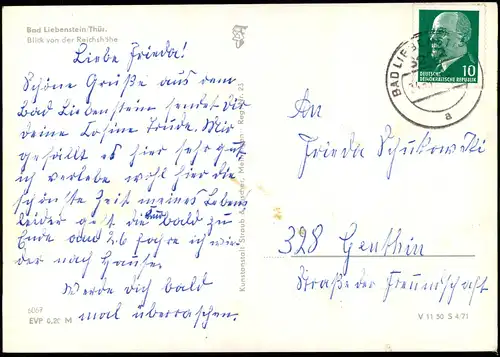 Bad Liebenstein/Thür.
Blick von der Reichshöhe
Liebe Frieda!
Schöne Grüße aus dem
Bad Liebenstein sendet Dir
deine Cosine Trude. Mir
gefällt es hier sehr gut
ich verlebe wohl hier die
schönste Zeit meines Lebens
leider geht die bald zu
Ende 26 fahre ich wie
der nach Hause.
Werde dich bald
mal überraschen.
6067
EVP 0,20 M
Kunstanstalt Straub & Fischer, Reg. 23
BAD LIEB
a
10
DEUTSCHE
DEMOKRATISCHE REPUBLIK
An
Frieda Schukowski
328 Genthin
Straße der Freundschaft
V 11 50 S 4/71